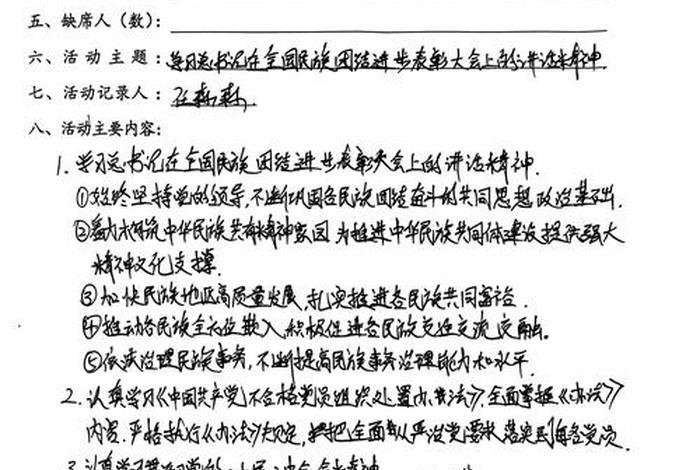 五、缺席人（数）：
六、活动主题：学习总书记在全国民族团结进步表彰大会上的讲话精神
七、活动记录人：
八、活动主要内容：
1. 学习总书记在全国民族团结进步表彰大会上的讲话精神.
①始终坚持党的领导,不断巩固各民族团结奋斗的共同思想政治基础.
②着力构筑中华民族共有精神家园 为推进中华民族共同体建设提供强大
精神文化支撑.
③加快民族地区高质量发展,扎实推进各民族共同富裕.
④推动各民族全方位嵌入,积极促进各民族交往交流交融.
⑤依法治理民族事务,不断提高民族事务治理能力和水平.
2. 认真学习《中国共产党不合格党员组织处置办法》,全面掌握《办法》
内容.严格执行《办法》规定,把全面从严治党要求落实到每名党员.
3. 认真学习